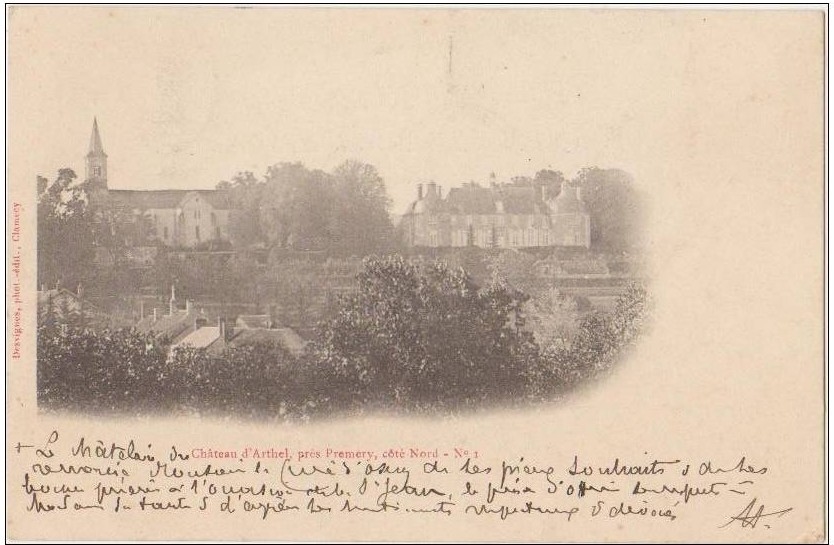 Desvignes, phot.-édit., Clamecy
Château d'Arthel, près Premery, côté Nord - N° 1
+ Le Châtelain du
remercie Monsieur le Curé d'    de ses pieux souhaits & de ses
bonnes prières à l'occasion de la St Jean, le prie d'offrir        à
Madame sa tante & d'agréer les sentiments respectueux & dévoués